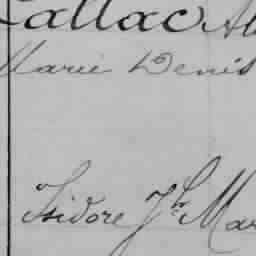 Lallac Al
Marie Denis
Isidore Jh Mar